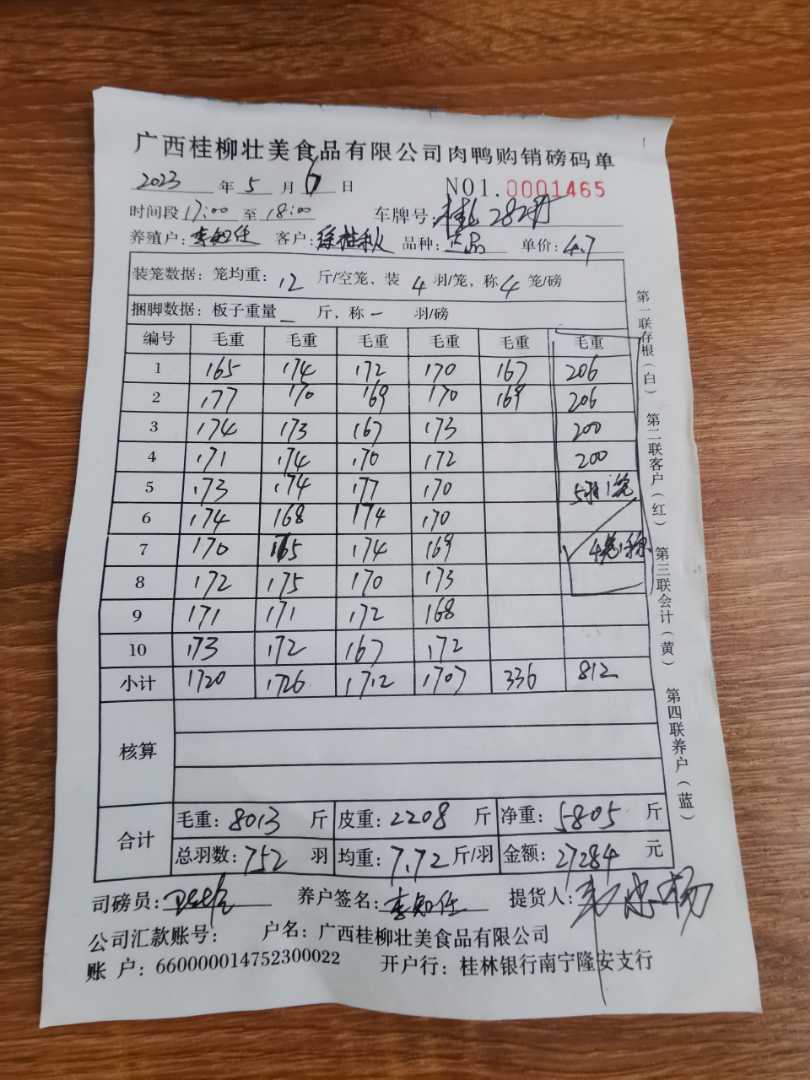 广西桂柳壮美食品有限公司肉鸭购销磅码单
2023 年 5 月 6 日 NO1. 0001465
时间段 17:00 至 18:00 车牌号:
养殖户: 李知任 客户: 徐桂秋 品种: 正品 单价: 4.7
装笼数据: 笼均重: 12 斤/空笼, 装 4 羽/笼, 称 4 笼/磅
捆脚数据: 板子重量 — 斤, 称 — 羽/磅
编号 毛重 毛重 毛重 毛重 毛重 毛重
1 165 174 172 170 167 206
2 177 170 169 170 169 206
3 174 173 167 173 200
4 171 174 170 172 200
5 173 174 177 170 5羽1笼
6 174 168 174 170
7 170 165 174 169 4笼1称
8 172 175 170 173
9 171 171 172 168
10 173 172 167 172
小计 1720 1726 1712 1707 336 812
核算
合计 毛重: 8013 斤 皮重: 2208 斤 净重: 5805 斤
总羽数: 752 羽 均重: 7.72 斤/羽 金额: 27284 元
司磅员: 养户签名: 李知任 提货人:
公司汇款账号: 户名: 广西桂柳壮美食品有限公司
账 户: 660000014752300022 开户行: 桂林银行南宁隆安支行
第一联存根(白) 第二联客户(红) 第三联会计(黄) 第四联养户(蓝)